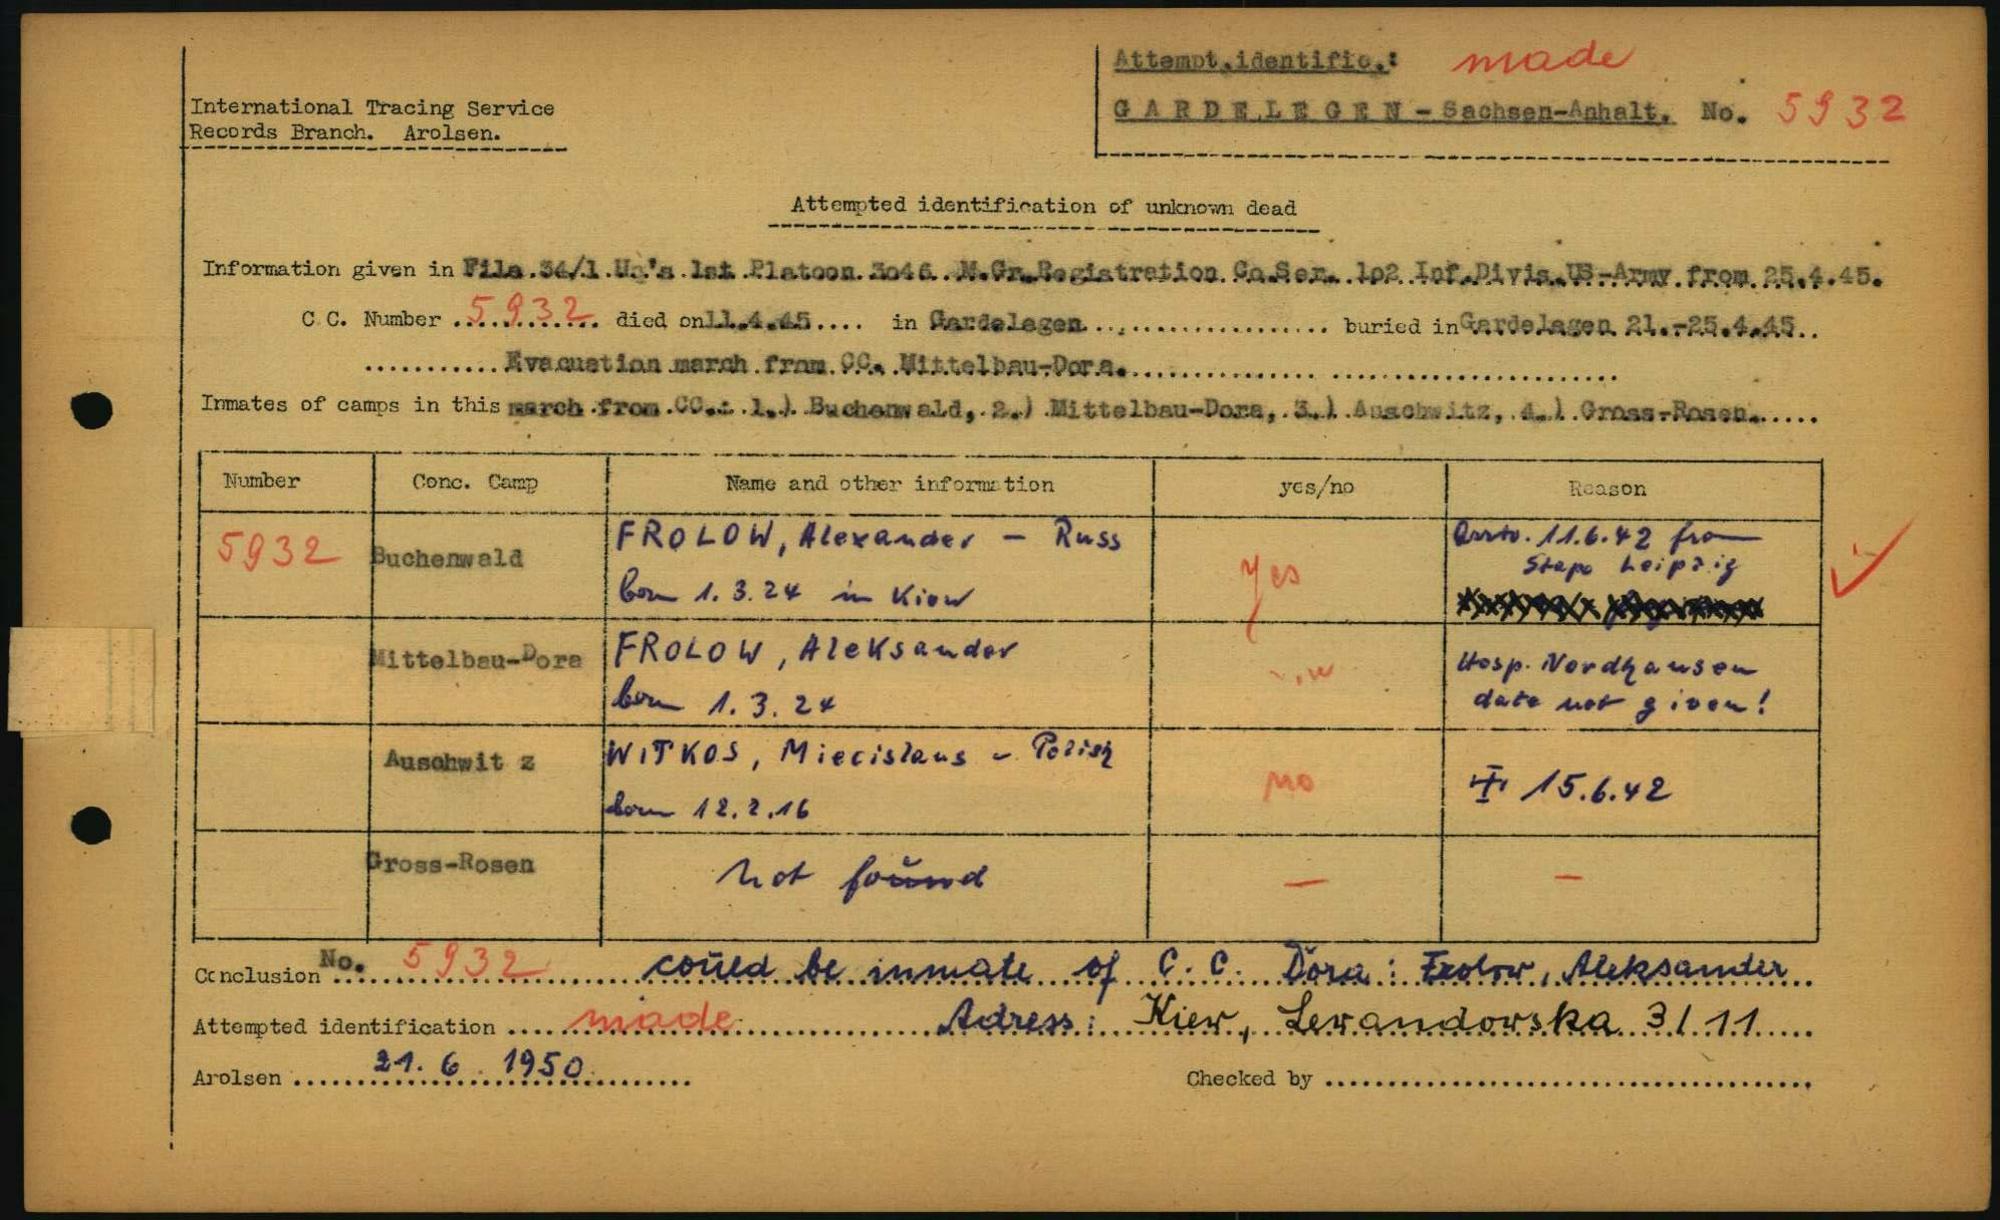 Attempt.identific.: made
International Tracing Service
Records Branch. Arolsen.
GARDELEGEN - Sachsen-Anhalt. No. 5932
Attempted identification of unknown dead
Information given in File 34/1 Un's 1st Platoon 3046 M.Gr.Registration Co.Ser. 1o2 Inf.Divis.US-Army from 25.4.45.
C.C. Number 5932 died on 11.4.45 in Gardelagen buried in Gardelagen 21.-25.4.45
Evacuation march from CC. Mittelbau-Dora.
Inmates of camps in this march from CC.: 1.) Buchenwald, 2.) Mittelbau-Dora, 3.) Auschwitz, 4.) Gross-Rosen.
Number Conc. Camp Name and other information yes/no Reason
5932 Buchenwald FROLOW, Alexander - Russ
born 1.3.24 in Kiew
yes
11.6.42 from
Stapo Leipzig
Mittelbau-Dora FROLOW, Aleksander
born 1.3.24
Hosp. Nordhausen
date not given!
Auschwitz WITKOS, Miecislaus - Polish
born 12.2.16
no
15.6.42
Gross-Rosen not found — —
Conclusion No. 5932 could be inmate of C.C. Dora: Frolow, Aleksander
Attempted identification made Adress: Kiew, Lewandowska 3/11
Arolsen 21.6.1950 Checked by